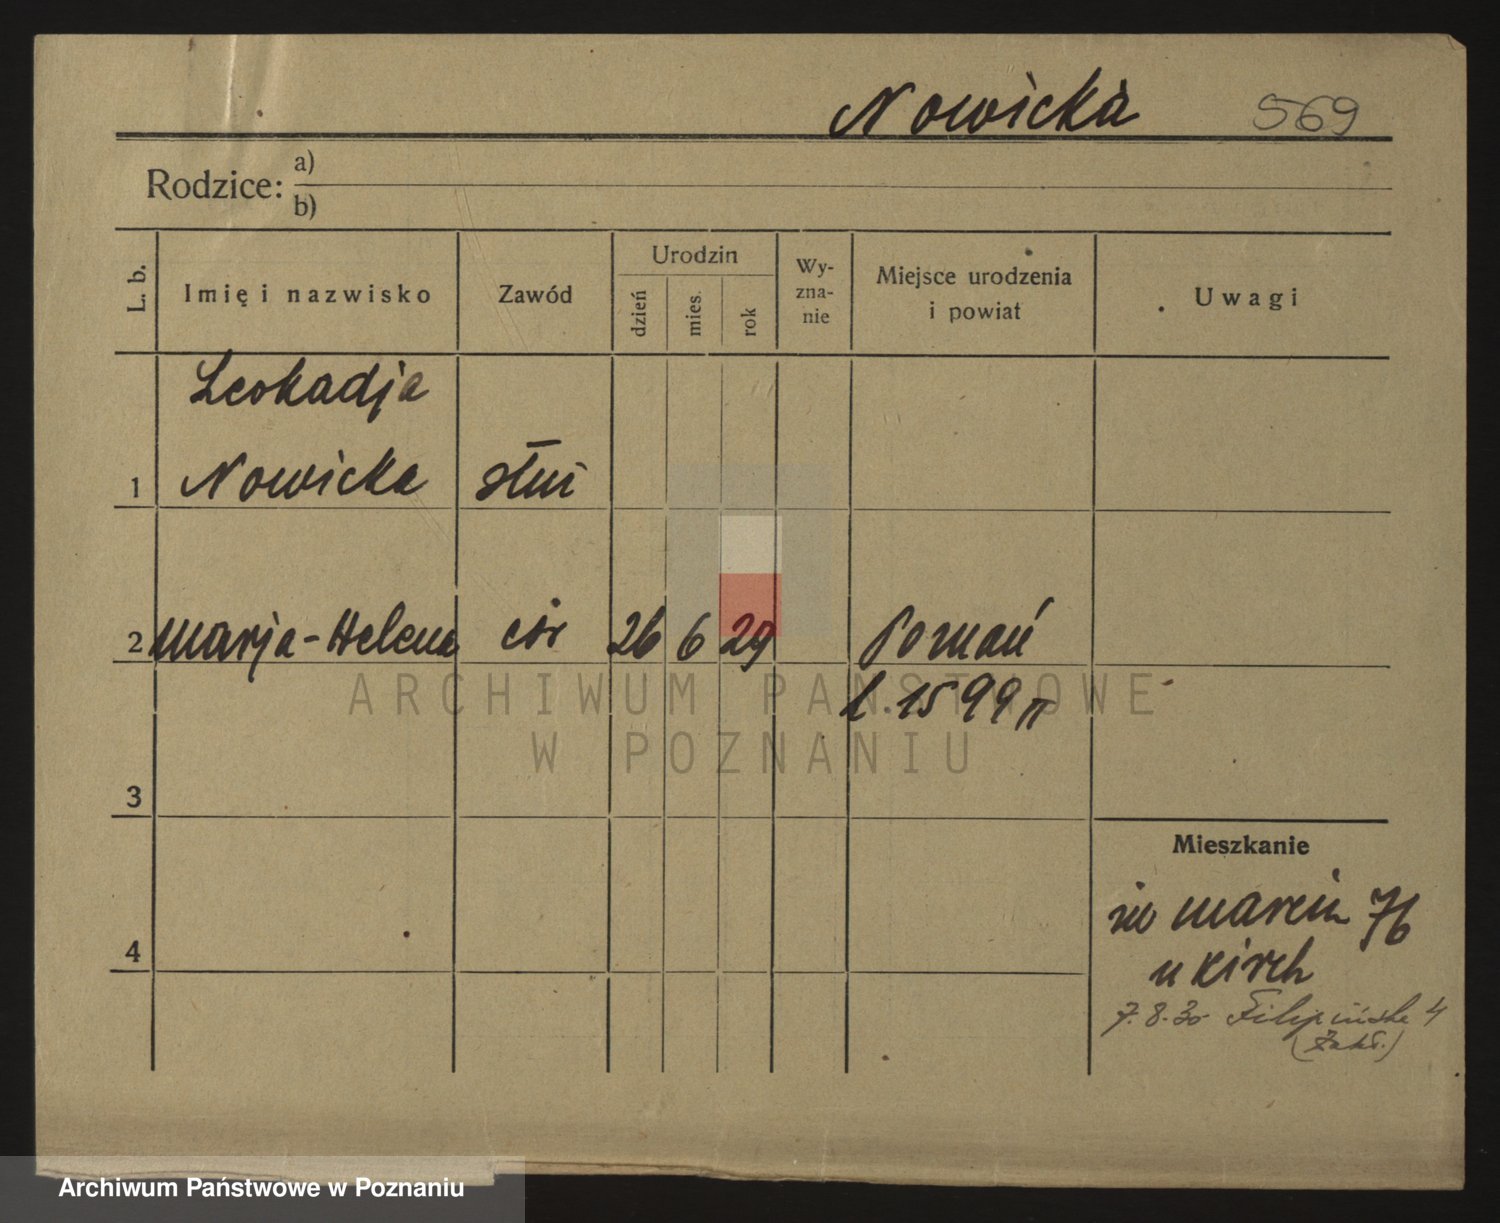 Nowicka 569
Rodzice: a)
b)
L. b. Imię i nazwisko Zawód Urodzin dzień mies. rok Wy-zna-nie Miejsce urodzenia i powiat Uwagi
Leokadja
1 Nowicka służ
2 Marja-Helena cór 26 6 29 Poznań
L. 1599 II
ARCHIWUM PAŃSTWOWE
W POZNANIU
3
Mieszkanie
św Marcin 76
4
u Kirch
7.8.30 Filipińska 4
(Zakł.)
Archiwum Państwowe w Poznaniu